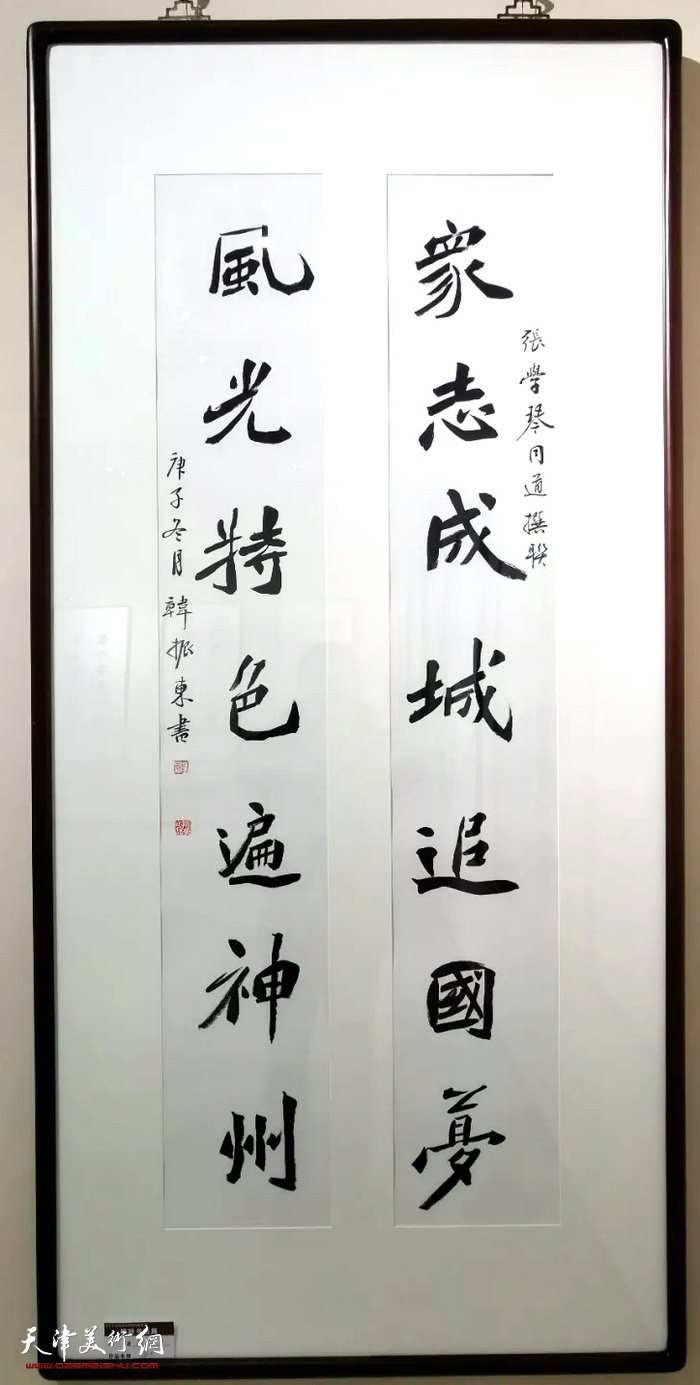 衆志成城追國夢
張學琴同道撰聯
風光特色遍神州
庚子冬月韓振東書
天津美術網